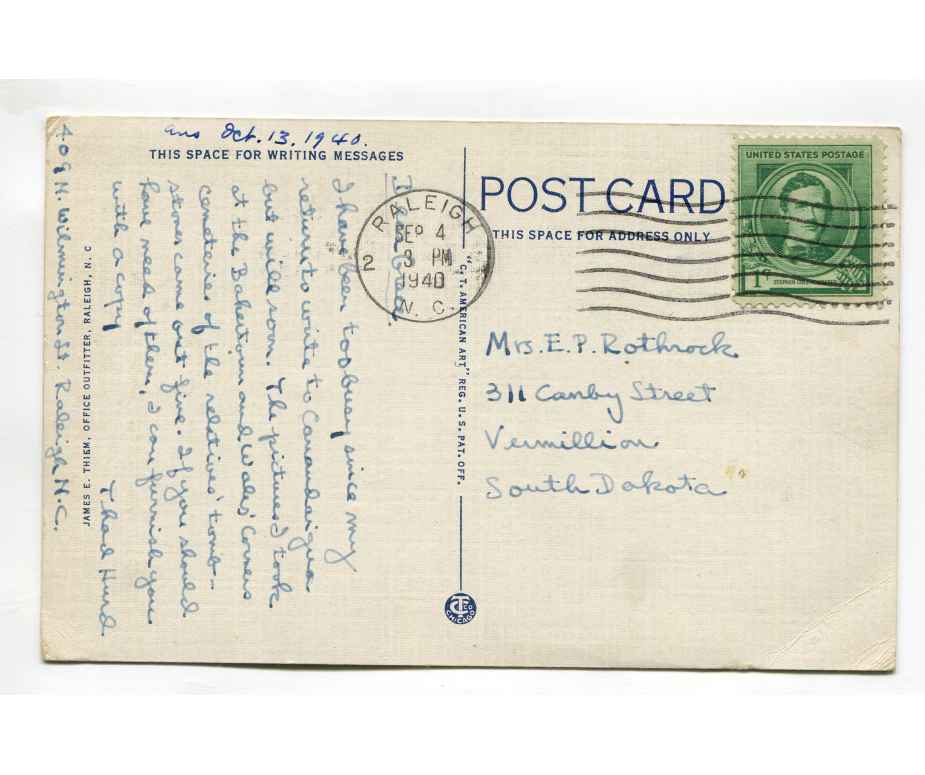 ans Oct. 13, 1940.
THIS SPACE FOR WRITING MESSAGES
I have been too busy since my
return to write to Canandaigua
but will soon. The pictures I took
at the Baker town and Wales' Corners
cemeteries of the relatives' tomb-
stones came out fine. If you should
have need of them, I can furnish you
with a copy
Thad Hurd
409 N. Wilmington St. Raleigh N.C.
JAMES E. THIEM, OFFICE OUTFITTER, RALEIGH, N. C
"C. T. AMERICAN ART," REG. U. S. PAT. OFF.
POST CARD
THIS SPACE FOR ADDRESS ONLY
RALEIGH
SEP 4
3 PM
1940
N. C.
2
UNITED STATES POSTAGE
1¢
Mrs. E. P. Rothrock
311 Canby Street
Vermillion
South Dakota
CT CO
CHICAGO